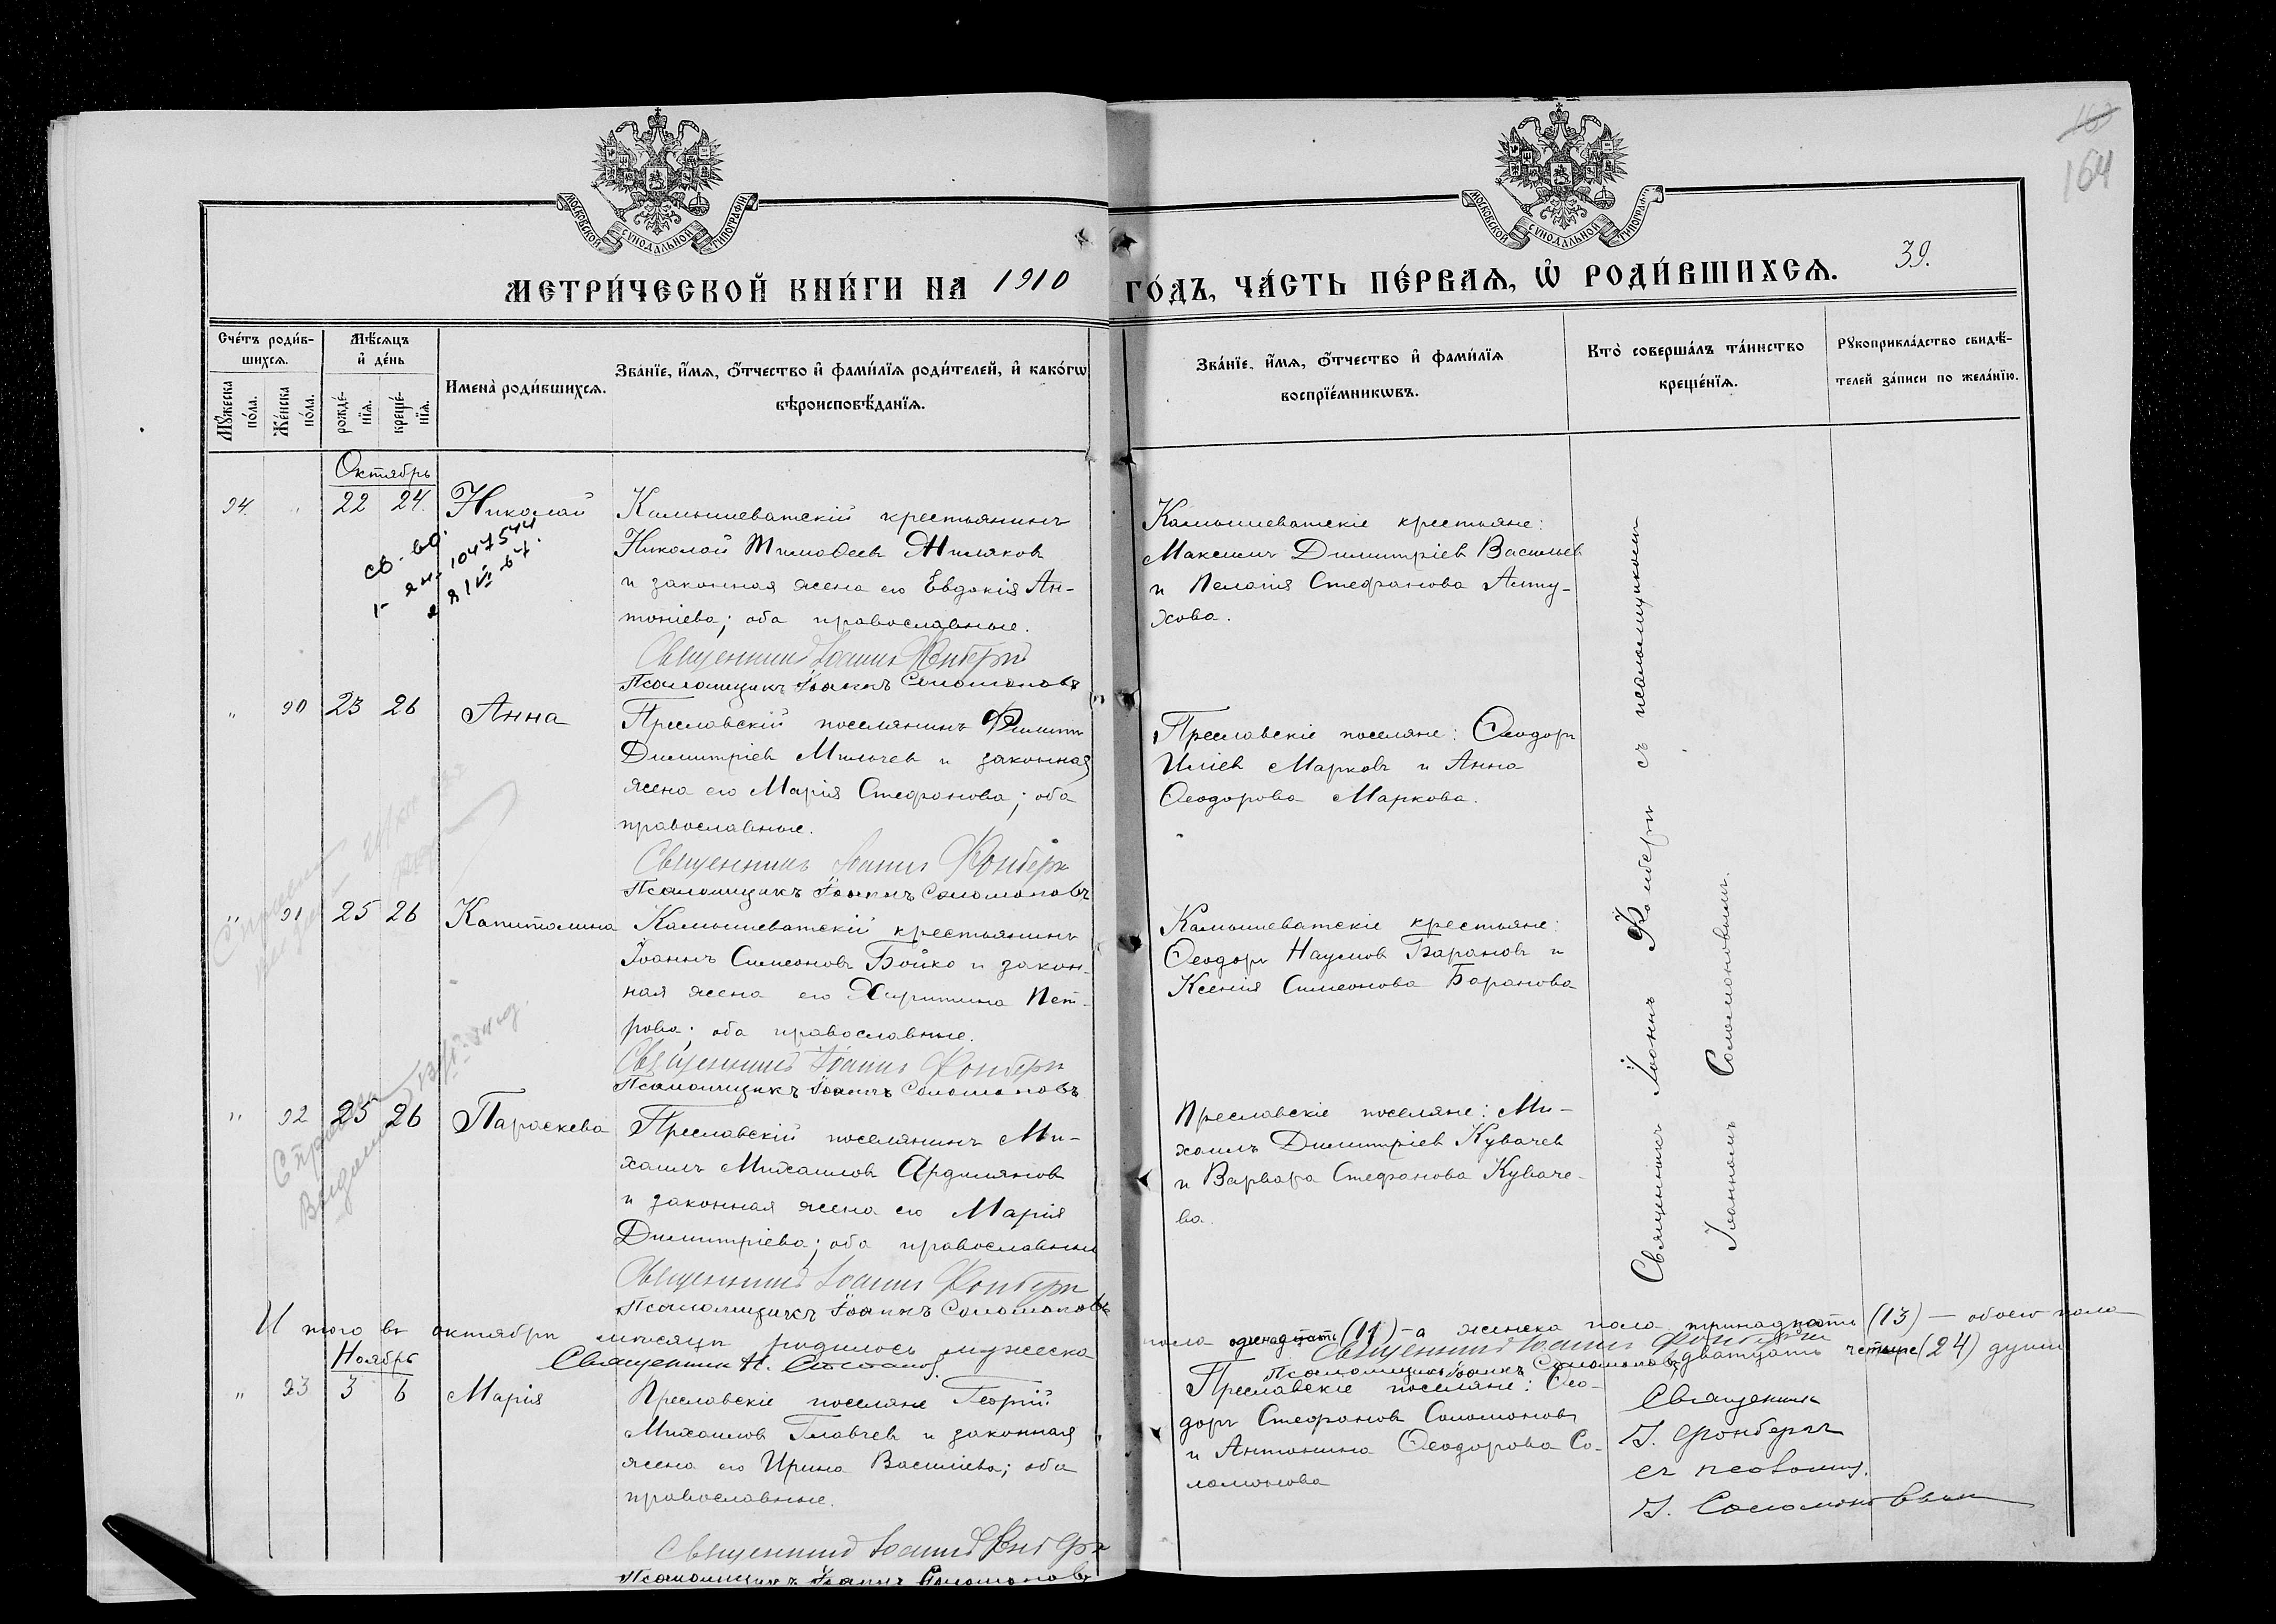 163
164
МОСКОВСКОЙ СУНОДАЛЬНОЙ ТИПОГРАФІИ
МОСКОВСКОЙ СУНОДАЛЬНОЙ ТИПОГРАФІИ
МЕТРИ́ЧЕСКОЙ КНИ́ГИ НА 1910 ГО́ДЪ, ЧА́СТЬ ПЕ́РВАѦ, Ѡ҆ РОДИ́ВШИХСѦ. 39.
Сче́тъ роди́в-
шихсѧ.
Мꙋ́жеска по́ла.
Же́нска по́ла.
Мѣ́сѧцъ
и҆ де́нь
рожде́-
нїѧ.
креще́-
нїѧ.
Имена̀ роди́вшихсѧ.
Зва́нїе, и҆́мѧ, ѻ҆́тчество и҆ фами́лїѧ роди́телей, и҆ како́гѡ
вѣроисповѣ́данїѧ.
Зва́нїе, и҆́мѧ, ѻ҆́тчество и҆ фами́лїѧ
воспрїе́мникѡвъ.
Кто̀ соверша́лъ та́инство
креще́нїѧ.
Рꙋкоприкла́дство свидѣ́-
телей за́писи по жела́нїю.
Октябрь
94. " 22 24. Николай
Камышеватскій крестьянинъ
Николай Тимоѳеевъ Жиляков
и законная жена его Евдокія Ан-
тоніева; оба православные.
Священникъ Іоаннъ Фонберъ
Псаломщикъ Іоаннъ Соломоновъ
Камышеватскіе крестьяне:
Максимъ Димитріев Васильев
и Пелагія Стефанова Алту-
хова.
св-во.
1047544
" 90 23 26 Анна
Преславскій поселянинъ Филиппъ
Димитріев Милчев и законная
жена его Марія Стефанова; оба
православные.
Священникъ Іоаннъ Фонберъ
Псаломщикъ Іоаннъ Соломоновъ
Преславскіе поселяне: Ѳеодоръ
Иліев Марковъ и Анна
Ѳеодорова Маркова.
" 91 25 26 Капитолина
Камышеватскій крестьянинъ
Іоаннъ Симеоновъ Бойко и закон-
ная жена его Харитина Пет-
рова; оба православные.
Священникъ Іоаннъ Фонберъ
Псаломщикъ Іоаннъ Соломоновъ
Камышеватскіе крестьяне:
Ѳеодоръ Наумов Барановъ и
Ксенія Симеонова Баранова
" 92 25 26 Параскева
Преславскій поселянинъ Ми-
хаилъ Михаилов Ардилянов
и законная жена его Марія
Димитріева; оба православные
Священникъ Іоаннъ Фонберъ
Псаломщикъ Іоаннъ Соломоновъ
Преславскіе поселяне: Ми-
хаилъ Димитріев Кувачев
и Варвара Стефанова Куваче-
ва.
Священникъ Іоаннъ Фонберъ съ псаломщикомъ
Іоанномъ Соломоновымъ.
Итого въ октябрѣ мѣсяцѣ родилось мужеска пола одинадцать (11) — а женска пола тринадцать (13) — обоего пола
двадцать четыре (24) души
Священникъ Іоаннъ Фонберъ
Псаломщикъ Іоаннъ Соломоновъ
Ноябрь
Священник Н.
" 93 3 6 Марія
Преславскіе поселяне Георгій
Михаилов Главчев и законная
жена его Ирина Васильева; оба
православные.
Священникъ Іоаннъ Фонберъ
Псаломщикъ Іоаннъ Соломоновъ
Преславскіе поселяне: Ѳео-
доръ Стефанов Соломоновъ
и Антонина Ѳеодорова Со-
ломонова
Священникъ
І. Фонберъ
съ псаломщ.
І. Соломоновымъ